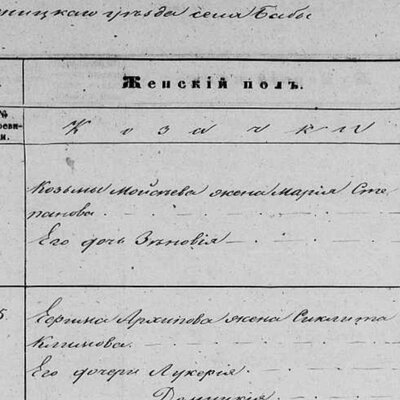 ницкаго уѣзда села Бабы
Женскій полъ.
№
реви-
и.
Козачки
Козьмы Мойсѣева жена Марія Сте
панова
Его дочь Зѣновія
5.
Ефрима Архипова жена Сиклита
Климова.
Его дочери Лукерія
Домникія